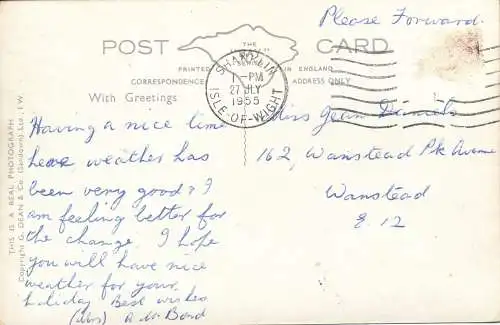 Please Forward.
POST CARD
THE
PRINTED IN ENGLAND
CORRESPONDENCE ADDRESS ONLY
With Greetings
SHANKLIN
1 - PM
27 JLY
1955
ISLE-OF-WIGHT
THIS IS A REAL PHOTOGRAPH
Copyright G. DEAN & Co (Sandown) Ltd., I.W.
Having a nice time
here weather has
been very good & I
am feeling better for
the change. I hope
you will have nice
weather for your
holiday Best wishes
(Mrs) A. M. Bond
Miss Jean
162, Wanstead Pk Avenue
Wanstead
E. 12